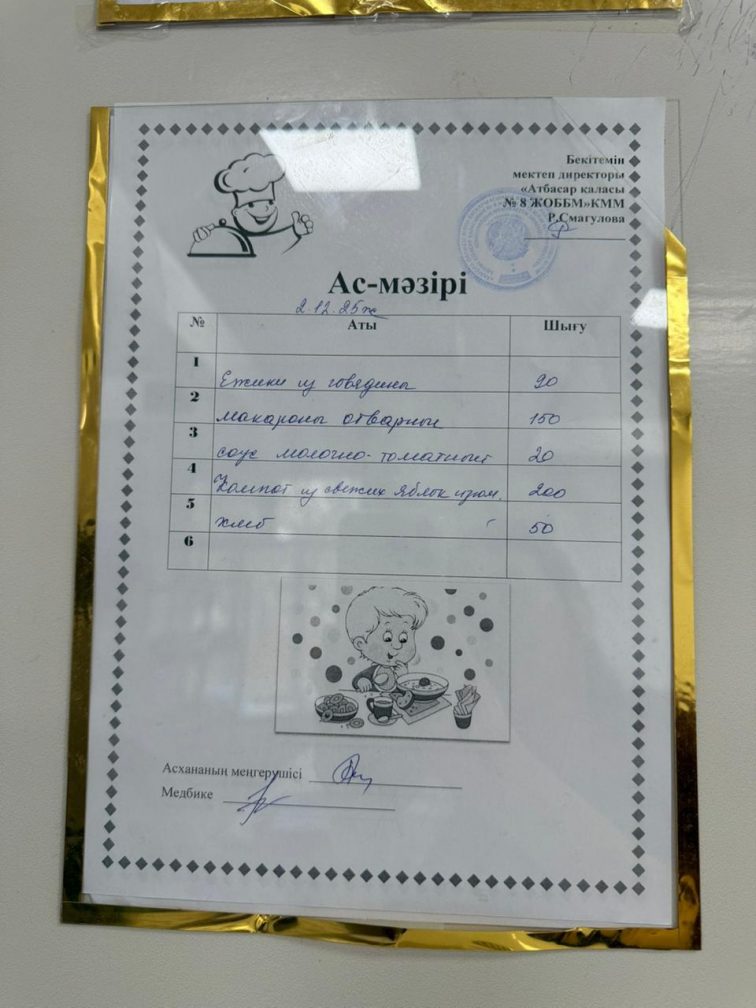 Бекітемін
мектеп директоры
«Атбасар қаласы
№ 8 ЖОББМ»КММ
Р.Смагулова
Ас-мәзірі
2.12.25ж
№ Аты Шығу
1 Ежики из говядины 90
2 макароны отварные 150
3 соус молочно-томатный 20
4 Компот из свежих яблок изюм. 200
5 хлеб 50
6
Асхананың меңгерушісі
Медбике